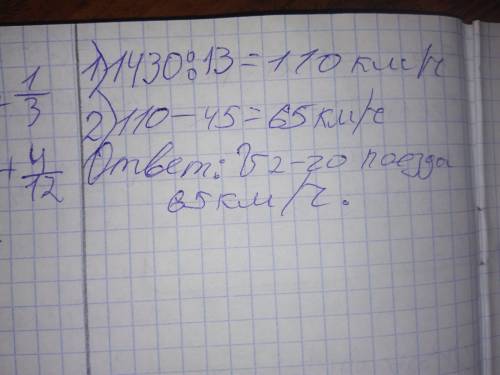 1) 1430:13=110 км/ч
2) 110-45=65 км/ч
Ответ: V 2-го поезда
65 км/ч.
1/3
+ 4/12